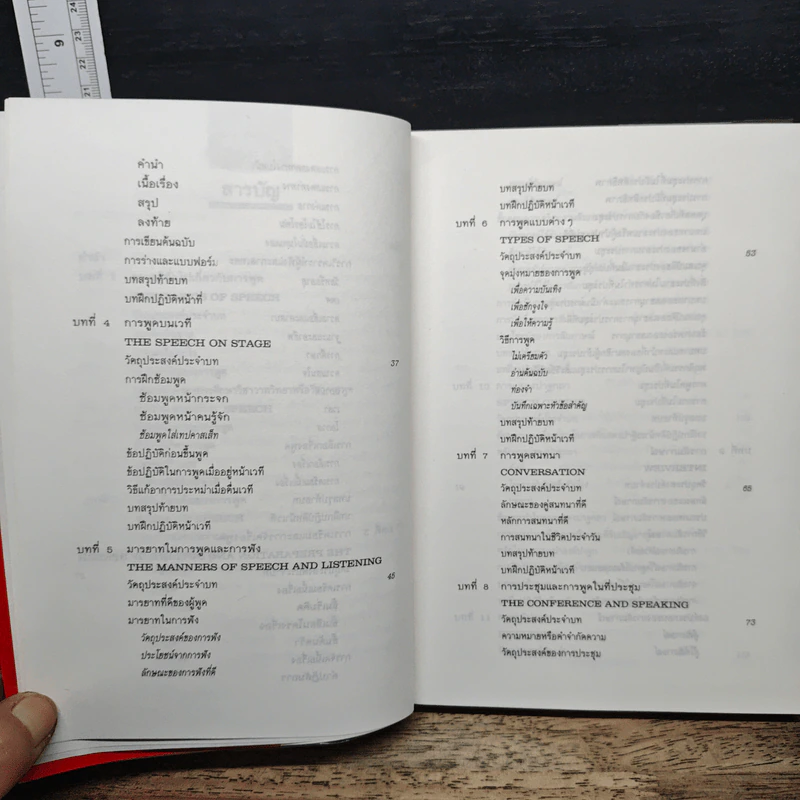 คำนำ
เนื้อเรื่อง
สรุป
ลงท้าย
การเขียนต้นฉบับ
การร่างและแบบฟอร์ม
บทสรุปท้ายบท
บทฝึกปฏิบัติหน้าที่
บทที่ 4 การพูดบนเวที
THE SPEECH ON STAGE
วัตถุประสงค์ประจำบท 37
การฝึกซ้อมพูด
ซ้อมพูดหน้ากระจก
ซ้อมพูดหน้าคนรู้จัก
ซ้อมพูดใส่เทปคาสเส็ท
ข้อปฏิบัติก่อนขึ้นพูด
ข้อปฏิบัติในการพูดเมื่ออยู่หน้าเวที
วิธีแก้อาการประหม่าเมื่อตื่นเวที
บทสรุปท้ายบท
บทฝึกปฏิบัติหน้าเวที
บทที่ 5 มารยาทในการพูดและการฟัง
THE MANNERS OF SPEECH AND LISTENING
วัตถุประสงค์ประจำบท 45
มารยาทที่ดีของผู้พูด
มารยาทในการฟัง
วัตถุประสงค์ของการฟัง
ประโยชน์จากการฟัง
ลักษณะของการฟังที่ดี
บทสรุปท้ายบท
บทฝึกปฏิบัติหน้าเวที
บทที่ 6 การพูดแบบต่าง ๆ
TYPES OF SPEECH
วัตถุประสงค์ประจำบท 53
จุดมุ่งหมายของการพูด
เพื่อความบันเทิง
เพื่อชักจูงใจ
เพื่อให้ความรู้
วิธีการพูด
ไม่เตรียมตัว
อ่านต้นฉบับ
ท่องจำ
บันทึกเฉพาะหัวข้อสำคัญ
บทสรุปท้ายบท
บทฝึกปฏิบัติหน้าเวที
บทที่ 7 การพูดสนทนา
CONVERSATION
วัตถุประสงค์ประจำบท 65
ลักษณะของคู่สนทนาที่ดี
หลักการสนทนาที่ดี
การสนทนาในชีวิตประจำวัน
บทสรุปท้ายบท
บทฝึกปฏิบัติหน้าเวที
บทที่ 8 การประชุมและการพูดในที่ประชุม
THE CONFERENCE AND SPEAKING
วัตถุประสงค์ประจำบท 73
ความหมายหรือคำจำกัดความ
วัตถุประสงค์ของการประชุม